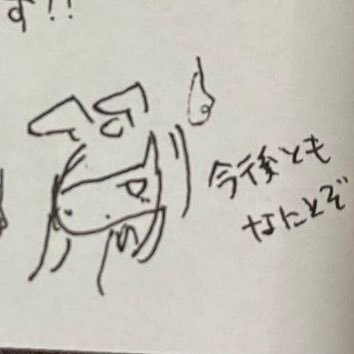 す!!
今後とも
なにとぞ